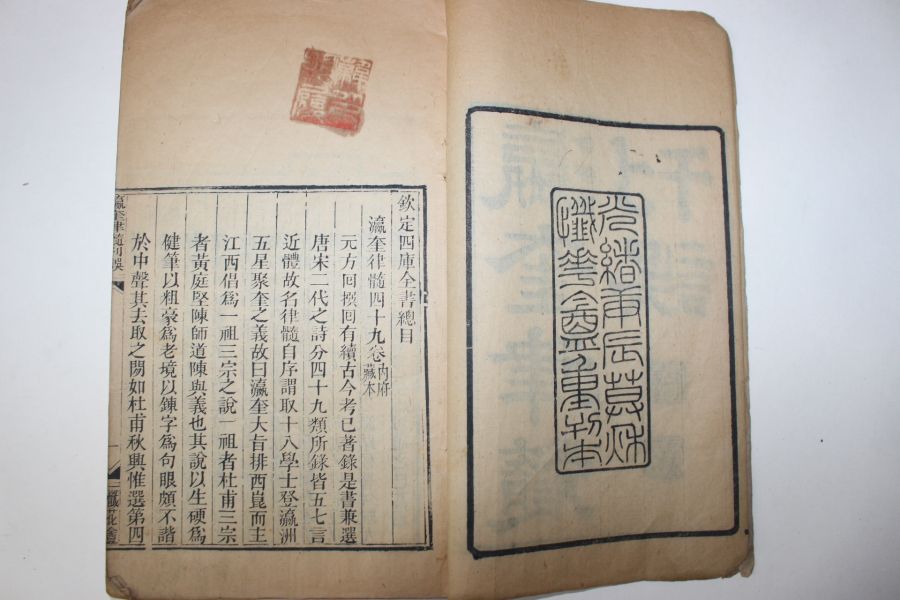 光緒庚辰莫秋
懺華盦重刊本
欽定四庫全書總目
瀛奎律髓四十九卷內府藏本
元方回撰回有續古今考已著錄是書兼選
唐宋二代之詩分四十九類所錄皆五七言
近體故名律髓自序謂取十八學士登瀛洲
五星聚奎之義故曰瀛奎大旨排西崑而主
江西倡爲一祖三宗之說一祖者杜甫三宗
者黃庭堅陳師道陳與義也其說以生硬爲
健筆以粗豪爲老境以鍊字爲句眼頗不諧
於中聲其去取之閒如杜甫秋興惟選第四
瀛奎律髓刊誤 一 懺花盦